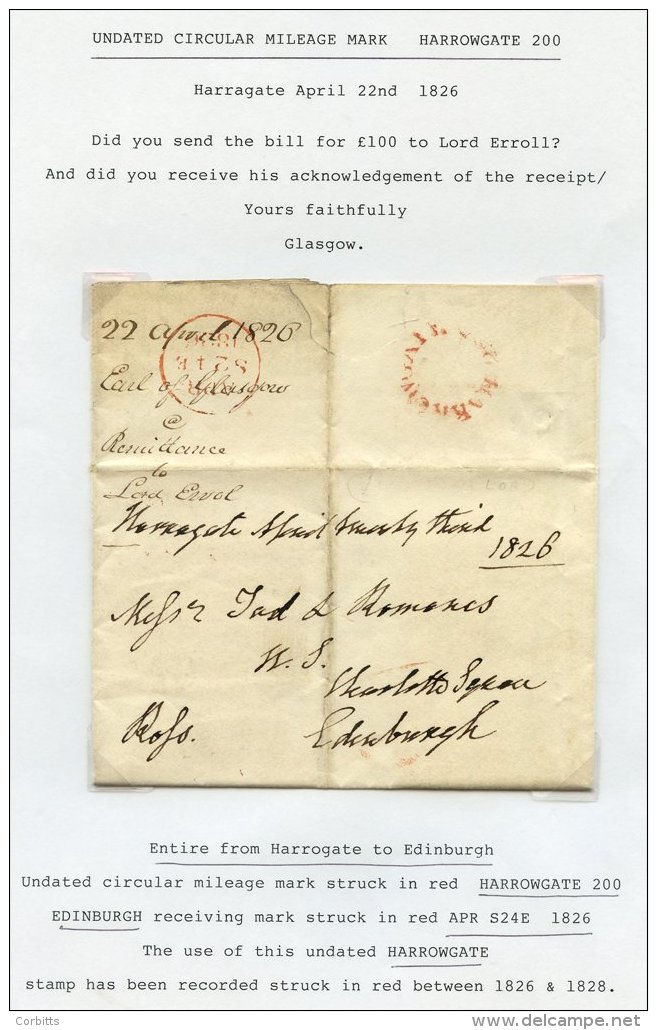 UNDATED CIRCULAR MILEAGE MARK HARROWGATE 200
Harragate April 22nd 1826
Did you send the bill for £100 to Lord Erroll?
And did you receive his acknowledgement of the receipt/
Yours faithfully
Glasgow.
22 April 1826
Earl of Glasgow
@
Remittance
to
Lord Errol
Harrogate April twenty third
1826
Messrs Tod & Romanes
W. S.
Charlotte Square
Edinburgh
Ross.
Entire from Harrogate to Edinburgh
Undated circular mileage mark struck in red HARROWGATE 200
EDINBURGH receiving mark struck in red APR S24E 1826
The use of this undated HARROWGATE
stamp has been recorded struck in red between 1826 & 1828.
Corbitts
www.delcampe.net